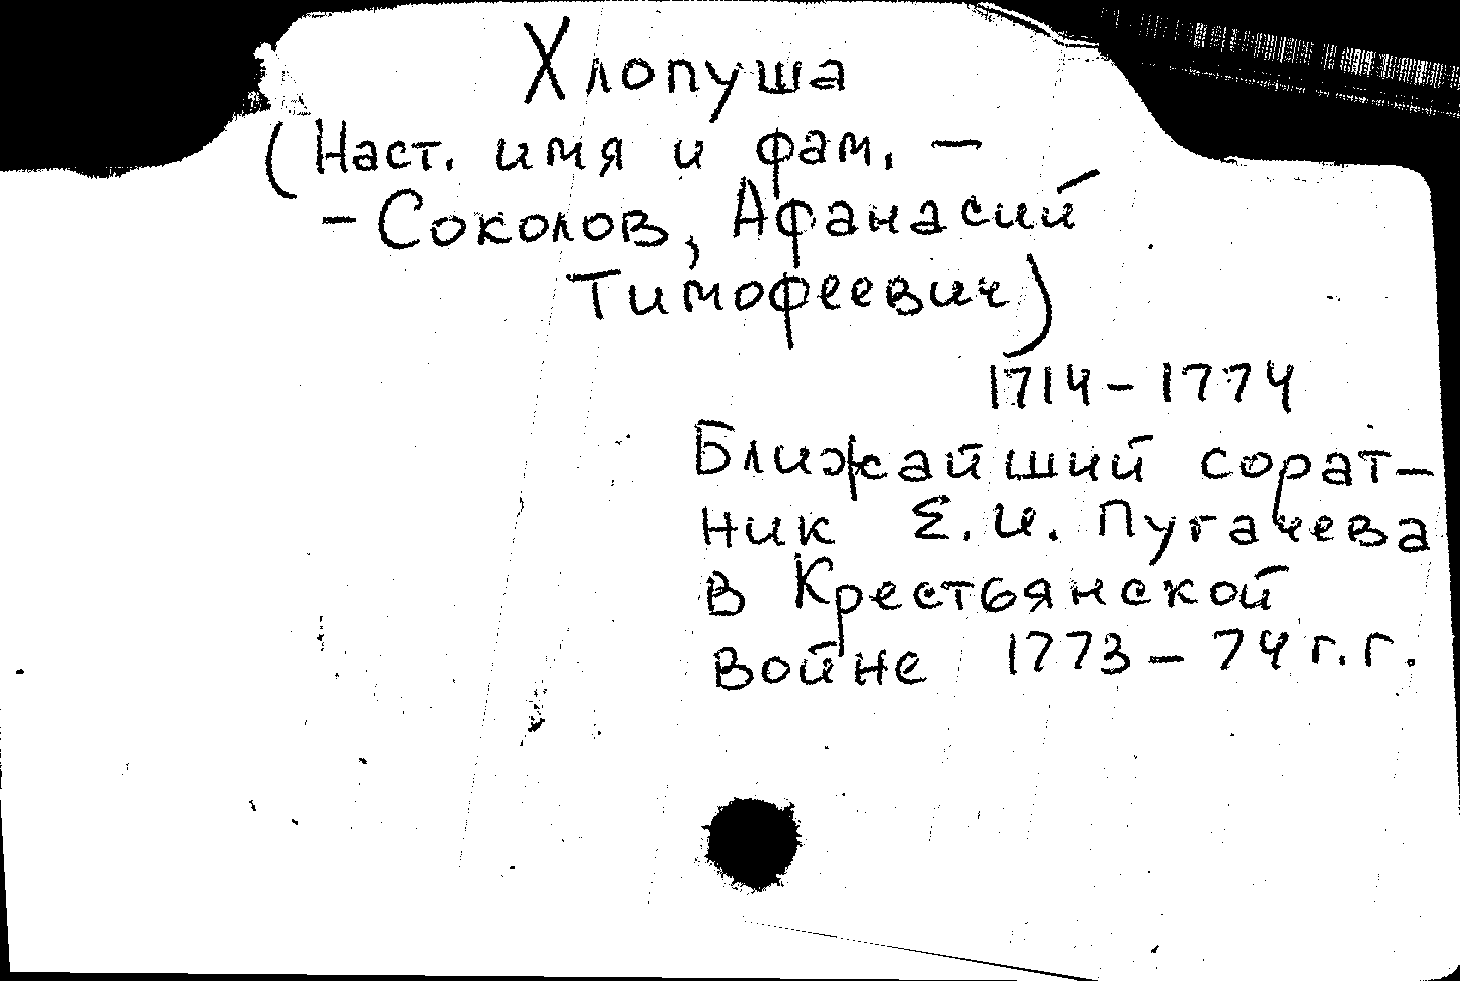 Хлопуша
(Наст. имя и фам. –
– Соколов, Афанасий
Тимофеевич)
1714 – 1774
Ближайший сорат–
ник Е.И. Пугачева
в Крестьянской
войне 1773 – 74 г.г.